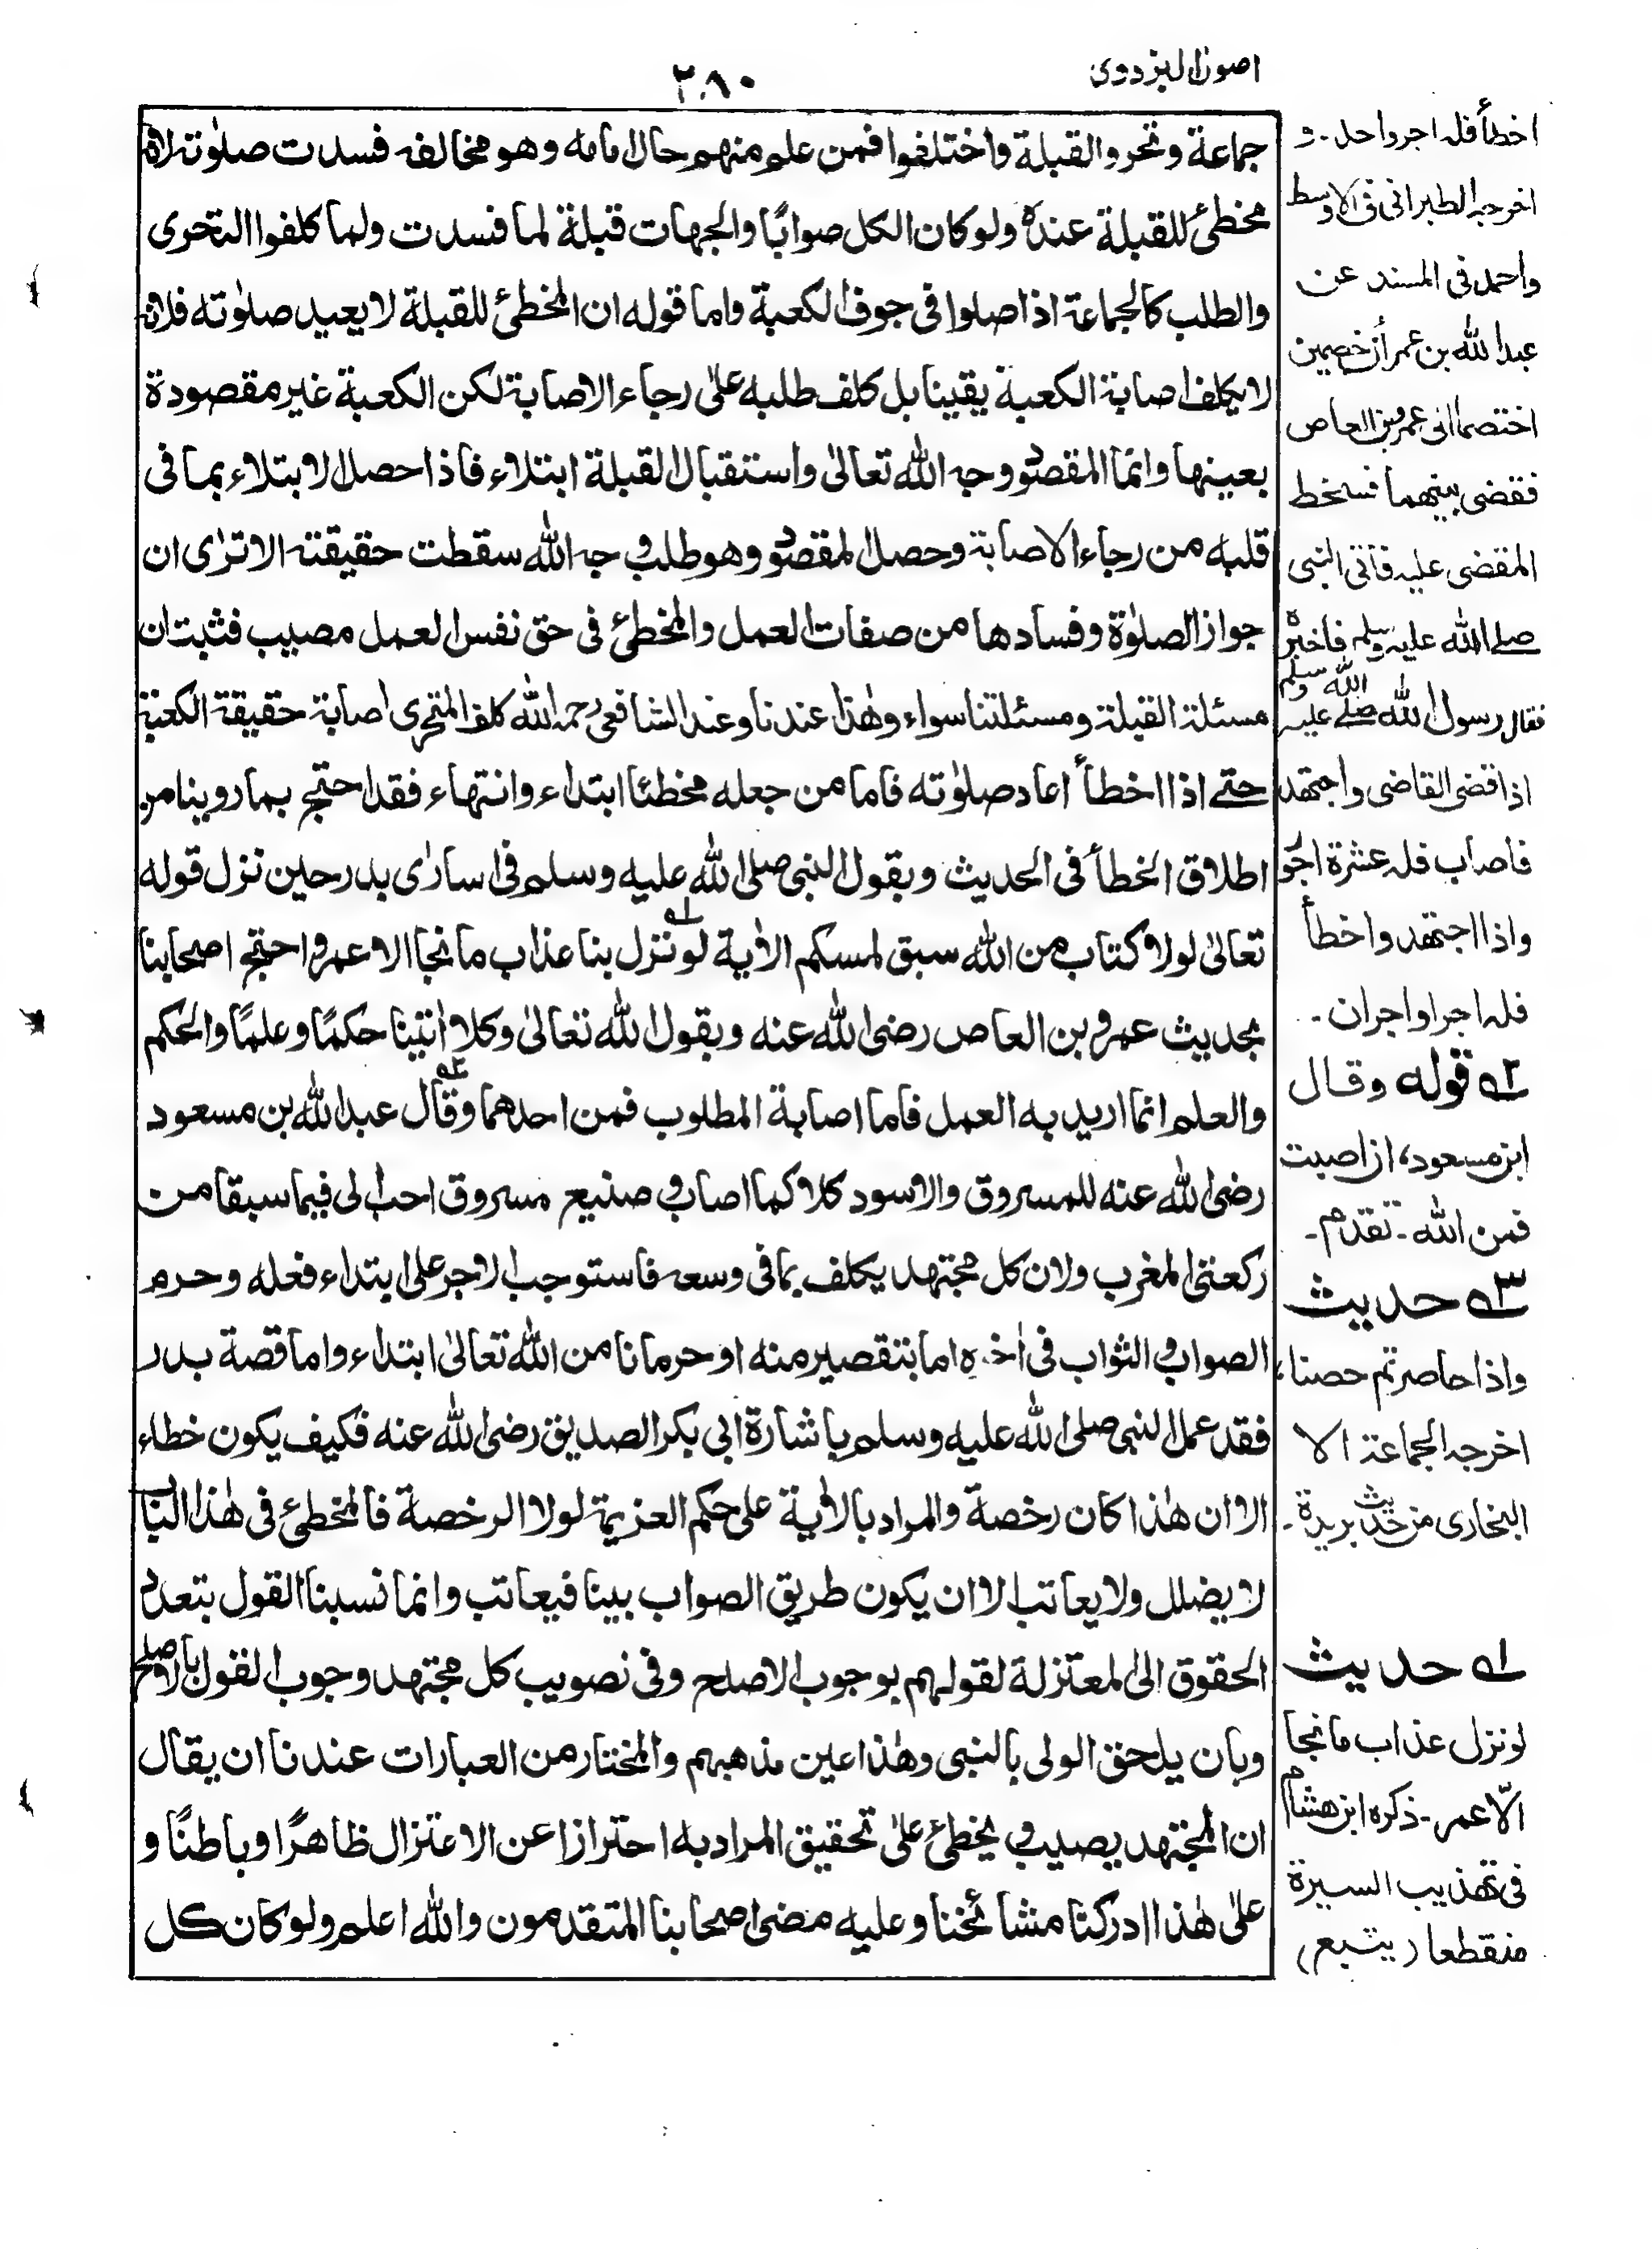 اصول البزدوي
٢٨٠
جماعة وتحروا القبلة واختلفوا فمن علم منهم حال امامه وهو مخالفه فسدت صلوٰته لانه
مخطئ للقبلة عنده ولو كان الكل صوابًا والجهات قبلة لما فسدت ولما كلفوا التحرى
والطلب كالجماعة اذا صلوا فى جوف الكعبة واما قوله ان المخطئ للقبلة لا يعيد صلوٰته فلانه
لا يكلف اصابة الكعبة يقينا بل كلف طلبه علىٰ رجاء الاصابة لكن الكعبة غير مقصودة
بعينها وانما المقصود وجه الله تعالىٰ واستقبال القبلة ابتلاء فاذا حصل الابتلاء بما فى
قلبه من رجاء الاصابة وحصل المقصود وهو طلب وجه الله سقطت حقيقته الا ترٰى ان
جواز الصلوٰة وفسادها من صفات العمل والمخطئ فى حق نفس العمل مصيب فثبت ان
مسئلة القبلة ومسئلتنا سواء وهٰذا عندنا وعند الشافعى رحمه الله كلف المتحرى اصابة حقيقة الكعبة
حتے اذا اخطأ اعاد صلوٰته فاما من جعله مخطئا ابتداء وانتهاء فقد احتج بما روينا من
اطلاق الخطأ فى الحديث وبقول النبى صلى الله عليه وسلم فى اسارٰى بدر حين نزل قوله
تعالىٰ لولا كتاب من الله سبق لمسكم الاٰية لو نزل بنا عذاب ما نجا الا عمر واحتج اصحابنا
بحديث عمرو بن العاص رضى الله عنه وبقول الله تعالىٰ وكلا اٰتينا حكمًا وعلمًا والحكم
والعلم انما اريد به العمل فاما اصابة المطلوب فمن احدهما وقال عبد الله بن مسعود
رضى الله عنه للمسروق والاسود كلاكما اصاب وصنيع مسروق احب الى فيما سبقا من
ركعتى المغرب ولان كل مجتهد يكلف بما فى وسعه فاستوجب الاجر على ابتداء فعله وحرم
الصواب والثواب فى اٰخره اما بتقصير منه او حرمانا من الله تعالىٰ ابتداء واما قصة بدر
فقد عمل النبى صلى الله عليه وسلم باشارة ابى بكر الصديق رضى الله عنه فكيف يكون خطاء
الا ان هٰذا كان رخصة والمراد بالاٰية على حكم العزيمة لولا الرخصة فالمخطئ فى هٰذا الباب
لا يضلل ولا يعاتب الا ان يكون طريق الصواب بينا فيعاتب وانما نسبنا القول بتعدد
الحقوق الى المعتزلة لقولهم بوجوب الاصلح وفى تصويب كل مجتهد وجوب القول بالاصلح
وبان يلحق الولى بالنبى وهٰذا عين مذهبهم والمختار من العبارات عندنا ان يقال
ان المجتهد يصيب ويخطئ علىٰ تحقيق المراد به احترازا عن الاعتزال ظاهرًا وباطنًا و
علىٰ هٰذا ادركنا مشائخنا وعليه مضى اصحابنا المتقدمون والله اعلم ولو كان كل
اخطأ فله اجر واحد ۔ و
اخرجه الطبرانى فى الاوسط
واحمد فى المسند عن
عبد الله بن عمر أن خصمين
اختصما الى عمرو بن العاص
فقضى بينهما فسخط
المقضى عليه فأتى النبى
صلے الله عليه وسلم فاخبره
فقال رسول الله صلے الله عليه وسلم
اذا قضى القاضى واجتهد
فاصاب فله عشرة اجور
واذا اجتهد واخطأ
فله اجر او اجران ۔
٢ قوله وقال
ابن مسعود، ان اصبت
فمن الله ۔ تقدم ۔
٣ حديث
واذا حاصرتم حصنا،
اخرجه الجماعة الا
البخارى من حديث بريدة ۔
١ حديث
لو نزل عذاب ما نجا
الّا عمر ۔ ذكره ابن هشام
فى تهذيب السيرة
منقطعا (يتبع)